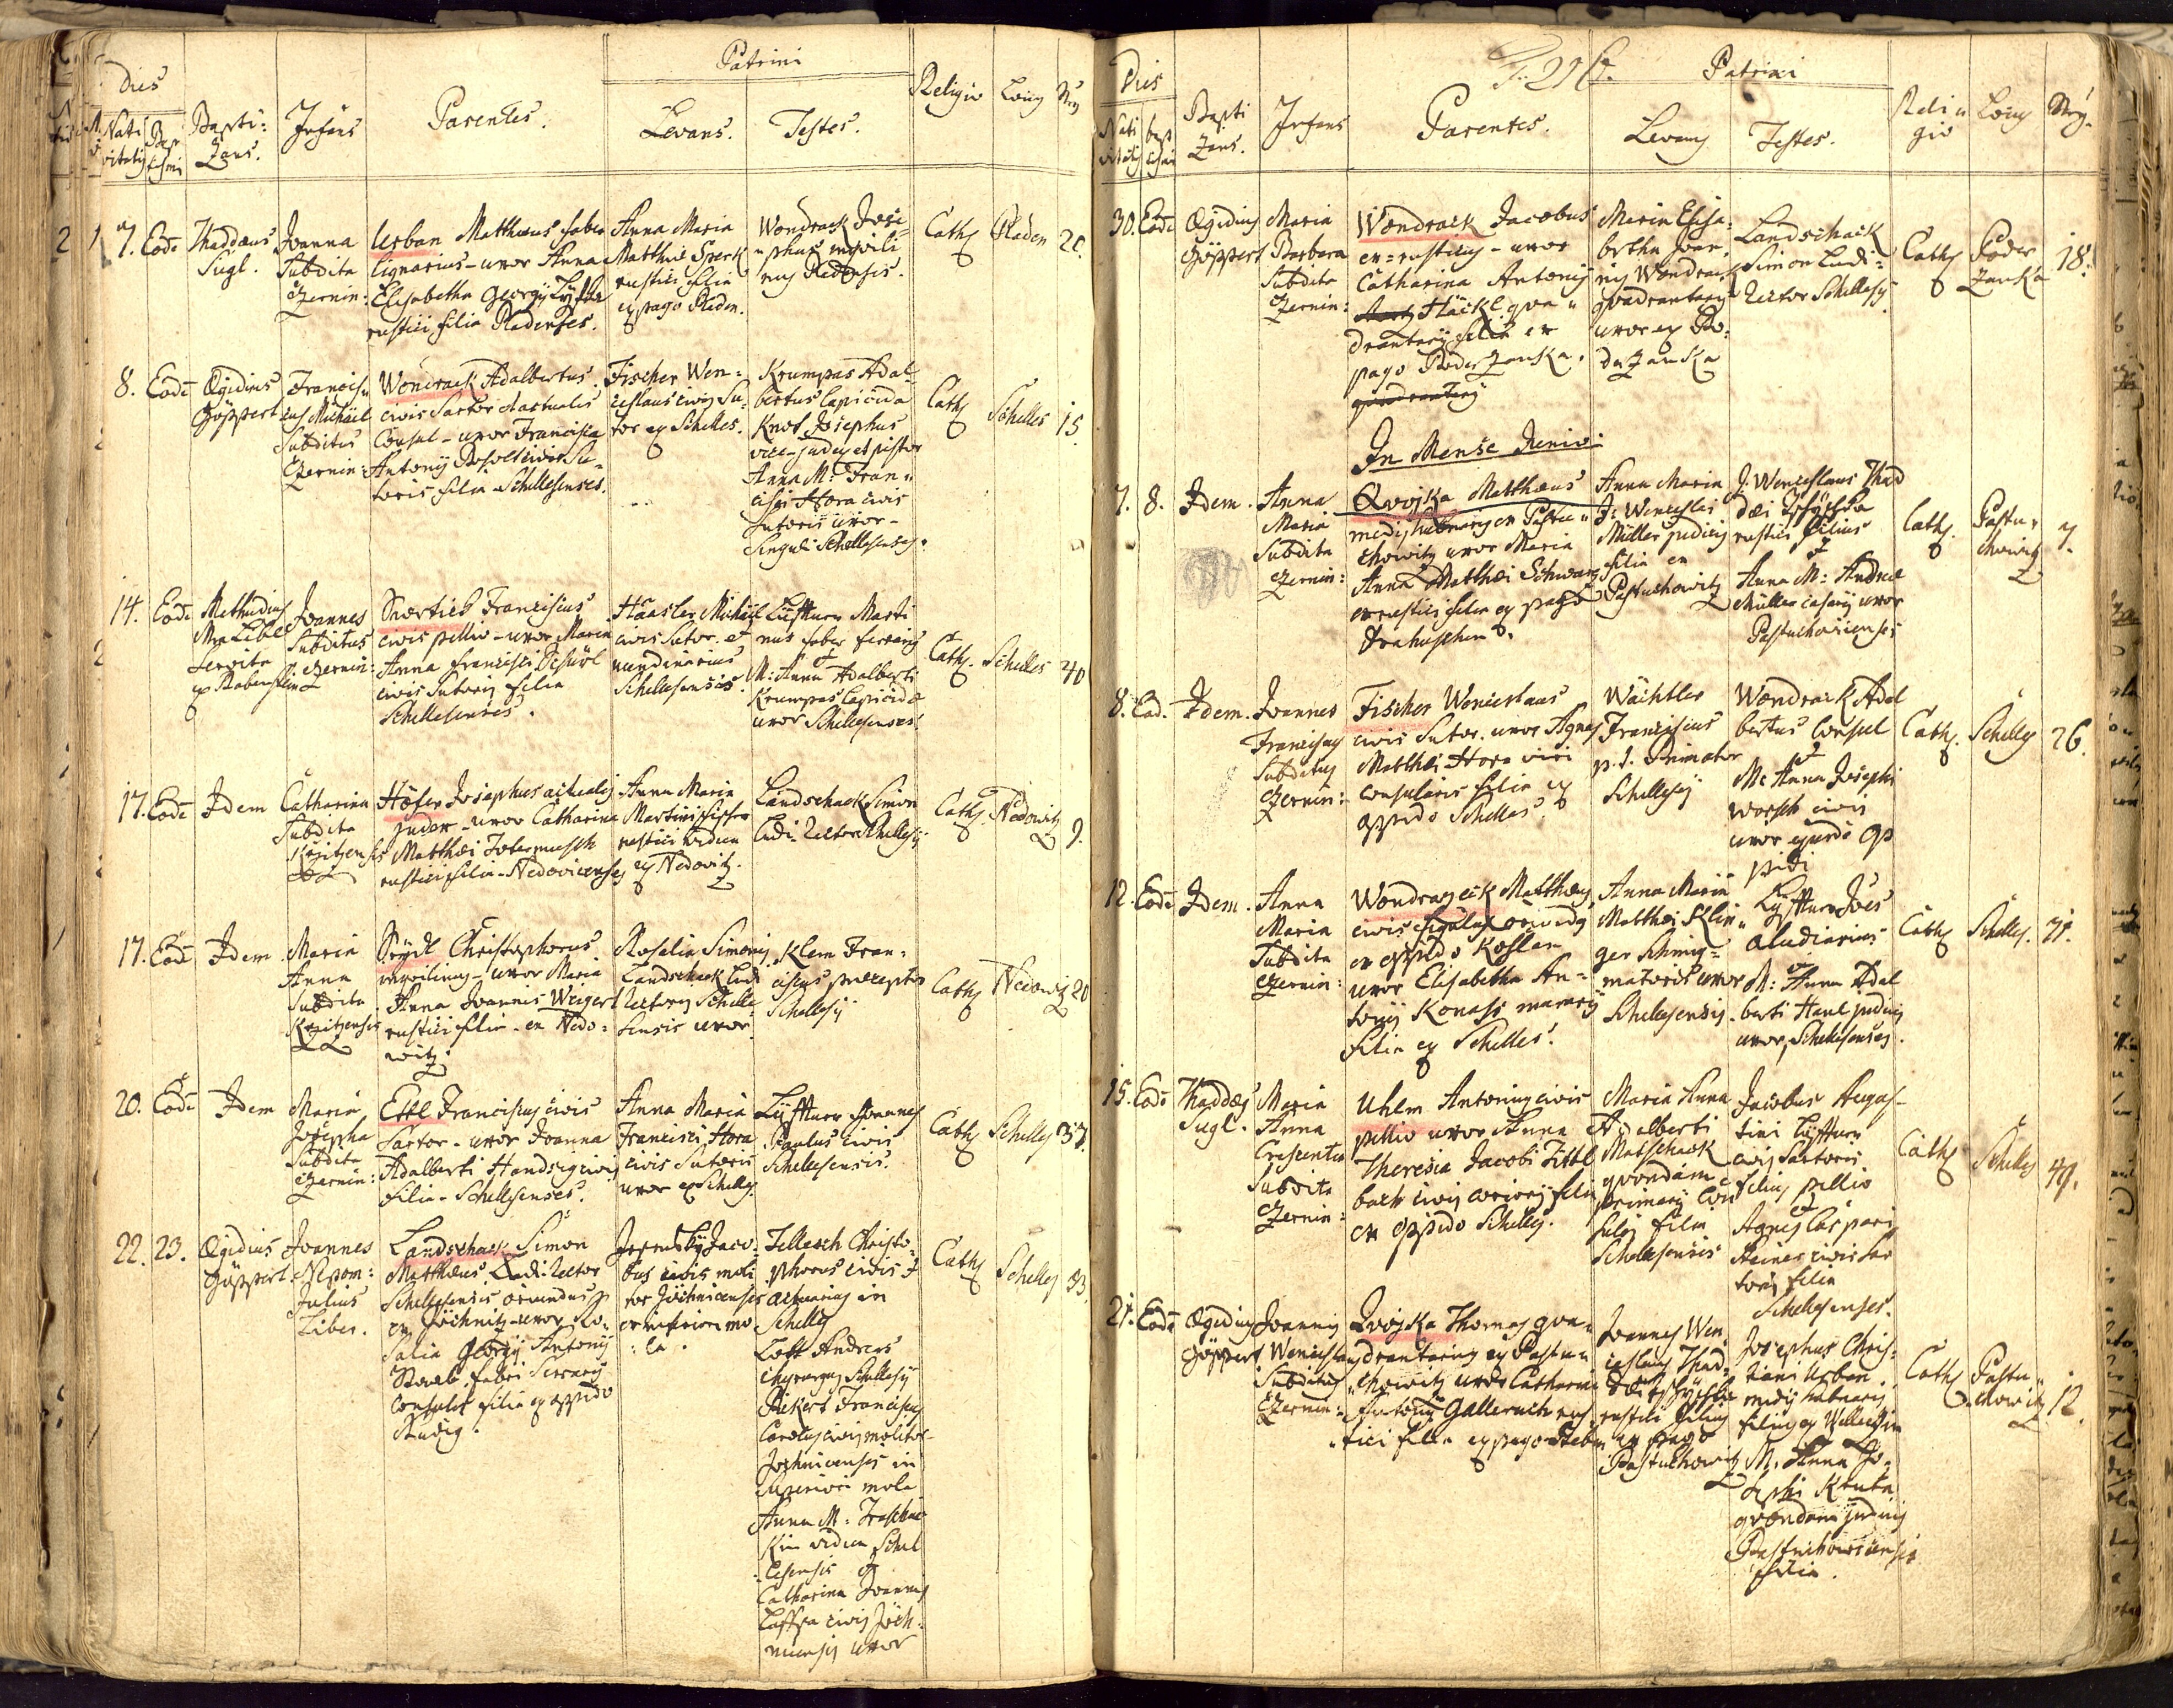 Dies
Nati
vitatis
Bap
tismi
Bapti:
zans.
Infans
Parentes.
Patrini
Levans.
Testes.
Religio
Locus
Nrus
7. Eodē
Thaddæus
Sugl.
Joanna
Subdita
Czernin:
Urban Matthæus faber
lignarius - uxor Anna
Elisabetha Georgij
rustici filia Pladenses.
Anna Maria
Matthæi Sperk
rustici filia
ex pago Pladen.
Wondrack Jose-
phus inquili
nus
Cath
Pladen
20.
8. Eodē
Ægidius
Göppert
Francis-
cus Michael
Subditus
Czernin:
Wondrack Adalbertus
civis Sartor Actualis
Consul - uxor Francisca
Antonij civis Su-
toris filia Schellesenses.
Fischer Wen-
ceslaus civis Su-
tor ex Schelles.
Krumpas Adal-
bertus Lapicida
Knot Josephus
vice-judex et pistor
Anna M: Fran-
cisci Hora civis
Sutoris uxor -
Singuli Schellesenses.
Cath
Schelles
15
14. Eodē
Methudius
Libl
Servita
ex Rabenstein
Joannes
Subditus
Czernin:
Franciscus
civis pellio - uxor Maria
Anna Francisci
civis Sutoris filia
Schellesenses.
Haasler Michael
civis Sutor et
nundinarius
Schellesensis.
Lyfftner Marti
nus faber ferrarius
et
M: Anna Adalberti
Krumpas Lapicidæ
uxor Schellesenses.
Cath.
Schelles
40
17. Eodē
Idem
Catharina
Subdita
Krzitzensis
Höfer Josephus actualis
Judex - uxor Catharina
Matthæi
rustici filia - Nedovicenses
Anna Maria
Martini Fischer
rustici vidua
ex Nedovitz.
Landschack Simon
Ludi-Rector Schellesij
Cath.
Nedowitz
9.
17. Eodē
Idem
Maria
Anna
Subdita
Krzitzensis
Seÿdl Christophorus
inquilinus - uxor Maria
Anna Joannis Weigert
rustici filia - ex Nedo-
witz.
Rosalia Simonis
Landschack Ludi
Rectoris Schelle-
sensis uxor
Klem Fran-
ciscus præceptor
Schellesij
Cath
Nedowitz
20
20. Eodē
Idem
Maria
Josepha
Subdita
Czernin:
Ettl Franciscus civis
Sartor - uxor Joanna
Adalberti Handrig civis
filia - Schellesenses.
Anna Maria
Francisci Hora
civis Sutoris
uxor ex Schelles.
Lyfftner Joannes
Paulus civis
Schellesensis.
Cath
Schelles
37.
22. 23.
Ægidius
Göppert
Joannes
Nepom:
Julius
Liber.
Landschack Simon
Matthæus Ludi-Rector
Schellesensis oriundus
ex Jechnitz - uxor Ro-
salia Georgij Antonij
fabri Serrarij
Consulis filia ex oppido
Rudig.
Jaco-
bus civis moli
tor Jechnicensis
ex inferiori mo
la.
Tellesch Christo-
phorus civis et
actuarius in
Schelles
Loth Andreas
Chyrurgus Schellesij
Pickert Franciscus
Carolus civis molitor
Jechnicensis in
superiori mola
Anna M:
vidua Schel
lesensis et
Catharina Joannis
Laffka civis Jech-
nicensis uxor
Cath
Schelles
33.
Dies
Nati
vitatis
bap
tismi
Bapti
zans.
Infans
Parentes.
Patrini
Levans
Testes.
Reli-
gio
Locus
Nrus.
30. Eodē
Ægidius
Göppert
Maria
Barbara
Subdita
Czernin:
Wondrack Jacobus
ex-rusticus - uxor
Catharina Antonij
Häckl qua-
drantarij filia ex
pago Poderzanka.
quadrantarij
Maria Elisa-
betha Joan-
nis Wondrack
quadrantarij
uxor ex Po-
derzanka
Landschack
Simon Ludi-
Rector Schellesij.
Cath
Poder
zanka
18.
In Mense Junio:
7. 8. Idem.
Anna
Maria
Subdita
Czernin:
Qvojska Matthæus
medij hubnarius ex Pastu-
chowitz uxor Maria
Anna Matthæi Schwarz
ex rustici filia ex pago
Drahuschen.
Anna Maria
J: Wenceslai
Müller judicis
filia ex
Pastuchowitz
J. Wenceslaus Thad
dæi
rustici filius
et
Anna M: Andreæ
Müller casarij uxor
Pastuchovicenses
Cath.
Pastu-
chowitz
7.
8. Eod. Idem.
Joannes
Franciscus
Subditus
Czernin:
Fischer Wenceslaus
civis Sutor. uxor Agnes
Matthæi Hora viri
consularis filia ex
oppido Schelles.
Wächtler
Franciscus
p. t. Primator
Schellesij
Wondrack Adal
bertus Consul
et
M: Anna Josephi
Worsch civis
uxor ejusdē op
pidi
Cath.
Schelles
26.
12. Eodē Idem.
Anna
Maria
Subdita
Czernin:
Wondrascek Matthæus
civis figulus oriundus
ex oppido Koslan
uxor Elisabetha An-
tonij Konass murarij
filia ex Schelles.
Anna Maria
Matthæi Klin-
ger Schmig-
matoris uxor
Schellesensis
Lyfftner Joēs
aludiarius
et
M: Anna Adal
berti Hanl judicis
uxor, Schellesenses.
Cath
Schelles.
71.
15. Eodē
Thaddæus
Sugl.
Maria
Anna
Crescentia
Subdita
Czernin:
Uhlm Antonius civis
pellio uxor Anna
Theresia Jacobi Zittl
bach civis coriarij filia
ex oppido Schelles.
Maria Anna
Adalberti
Matschack
quondam
primarij Con
sulis filia
Schellesensis
Jacobus Augus-
tini Lyfftner
civis Sartoris
filius pellio
et
Agnes Caspari
Steiner civis Sar
toris filia
Schellesenses.
Cath
Schelles
49.
21. Eodē
Ægidius
Göppert
Joannes
Wenceslaus
Subditus
Czernin:
Qvojska Thomas qua-
drantarius ex Pastu-
chowitz uxor Catharina
Antonij Gallerach rus-
tici filia ex pago Steben
Joannes Wen-
ceslaus Thad-
dæi
rustici filius
ex pago
Pastuchowitz
Josephus Chris-
tiani Urban
medij hubnarij
filius ex Wellechin
M. Anna Jo-
sephi Knota
quondam judicis
Pastuchovicensis
filia.
Cath
Pastu-
chowitz
12.